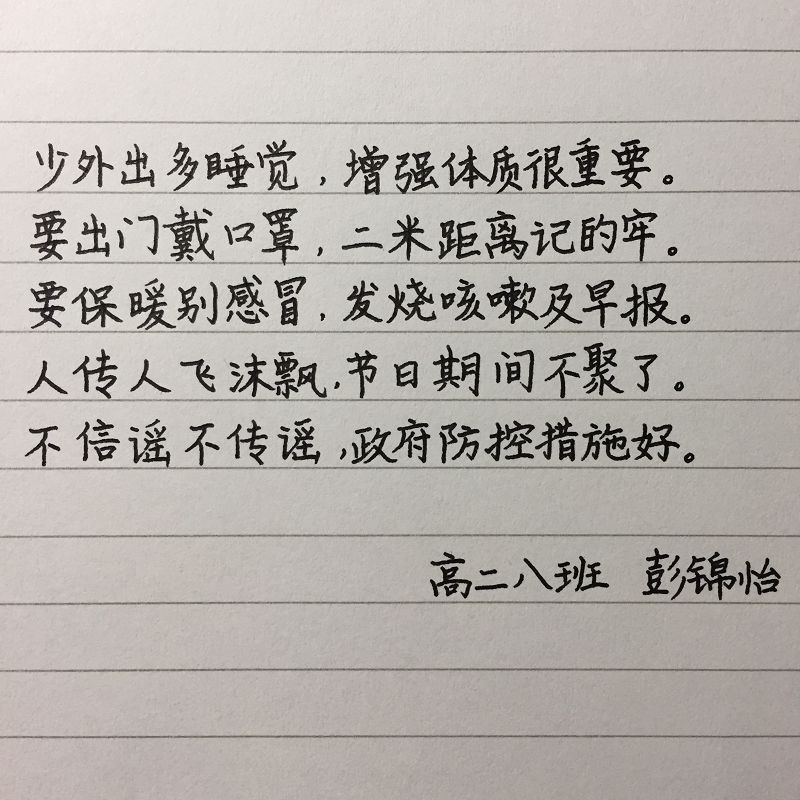 少外出多睡觉，增强体质很重要。
要出门戴口罩，二米距离记的牢。
要保暖别感冒，发烧咳嗽及早报。
人传人飞沫飘，节日期间不聚了。
不信谣不传谣，政府防控措施好。
高二八班 彭锦怡